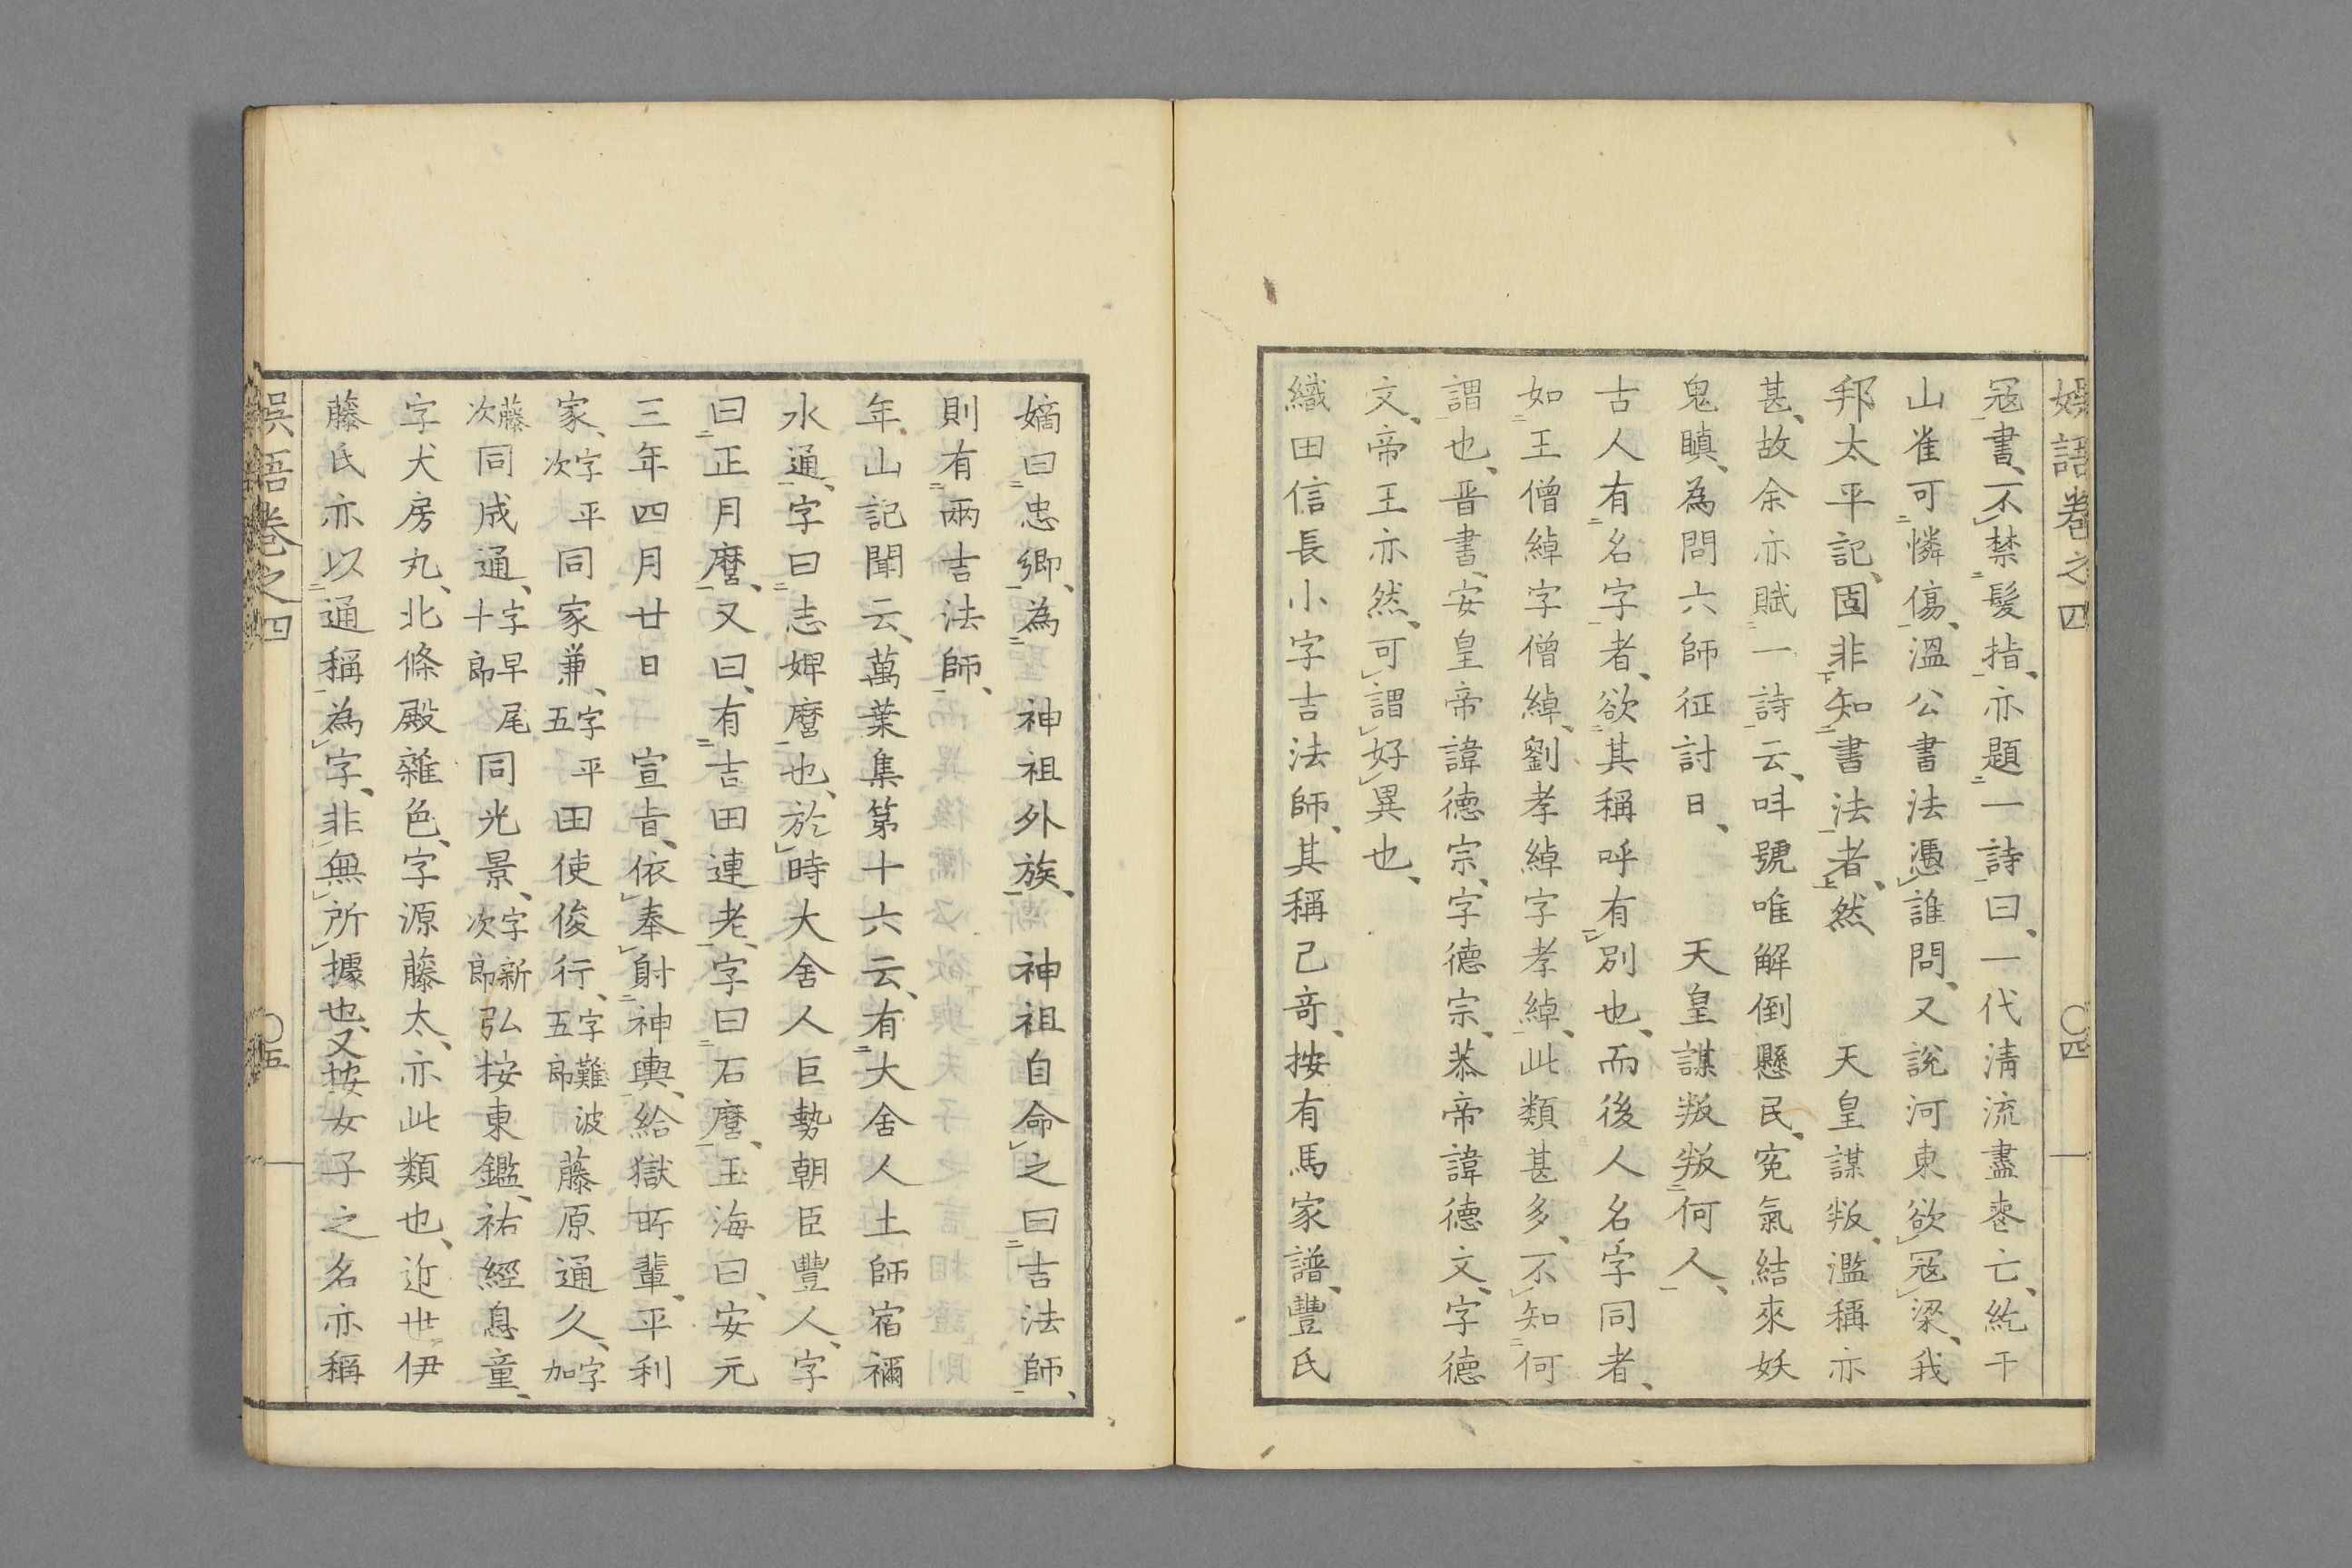 娯語卷之四
〇四
冦書、不禁髮指、亦題一詩曰、一代淸流盡喪亡、紇干
山雀可憐傷、溫公書法憑誰問、又說河東欲冦梁、我
邦太平記、固非知書法者、然　天皇謀叛、濫稱亦
甚、故余亦賦一詩云、呌號唯解倒懸民、寃氣結來妖
鬼瞋、爲問六師征討日、　天皇謀叛叛何人、
古人有名字者、欲其稱呼有別也、而後人名字同者、
如王僧綽字僧綽、劉孝綽字孝綽、此類甚多、不知何
謂也、晋書、安皇帝諱德宗、字德宗、恭帝諱德文、字德
文、帝王亦然、可謂好異也、
織田信長小字吉法師、其稱己奇、按有馬家譜、豐氏
嫡曰忠鄉、爲　神祖外族、　神祖自命之曰吉法師、
則有兩吉法師、
年山記聞云、萬葉集第十六云、有大舍人土師宿禰
水通、字曰志婢麿也、於時大舍人巨勢朝臣豐人、字
曰正月麿、又曰、有吉田連老、字曰石麿、玉海曰、安元
三年四月廿日　宣旨、依奉射神輿、給獄所輩、平利
家、字平次同家兼、字平五田使俊行、字難波五郎藤原通久、字加
藤次同成通、字早尾十郎同光景、字新次郎弘按東鑑、祐經息童、
字犬房丸、北條殿雜色、字源藤太、亦此類也、近世伊
藤氏亦以通稱爲字、非無所據也、又按女子之名亦稱
娯語卷之四
〇五